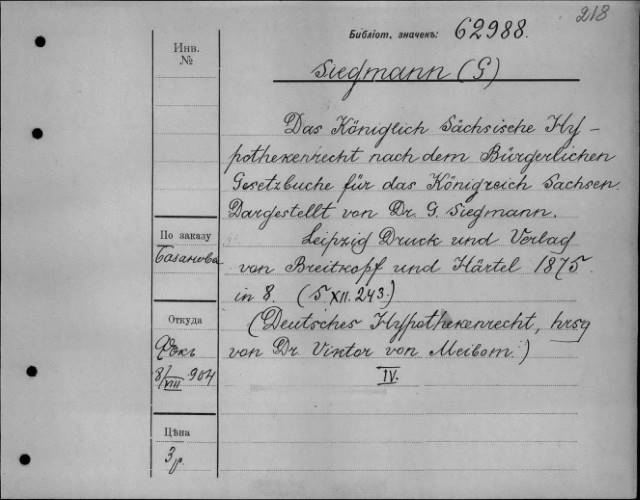 218
Библіот. значекъ: 62988.
Инв.
№
Siegmann (G)
Das Königlich Sächsische Hy-
pothekenrecht nach dem Bürgerlichen
Gesetzbuche für das Königreich Sachsen.
Dargestellt von Dr. G. Siegmann.
Leipzig Druck und Verlag
von Breitkopf und Härtel 1875.
in 8. (5 XII. 243.)
(Deutsches Hypothekenrecht, hrsg
von Dr. Viktor von Meibom.)
IV.
По заказу
Базанова
Откуда
8/VIII 904
Цѣна
3 р.